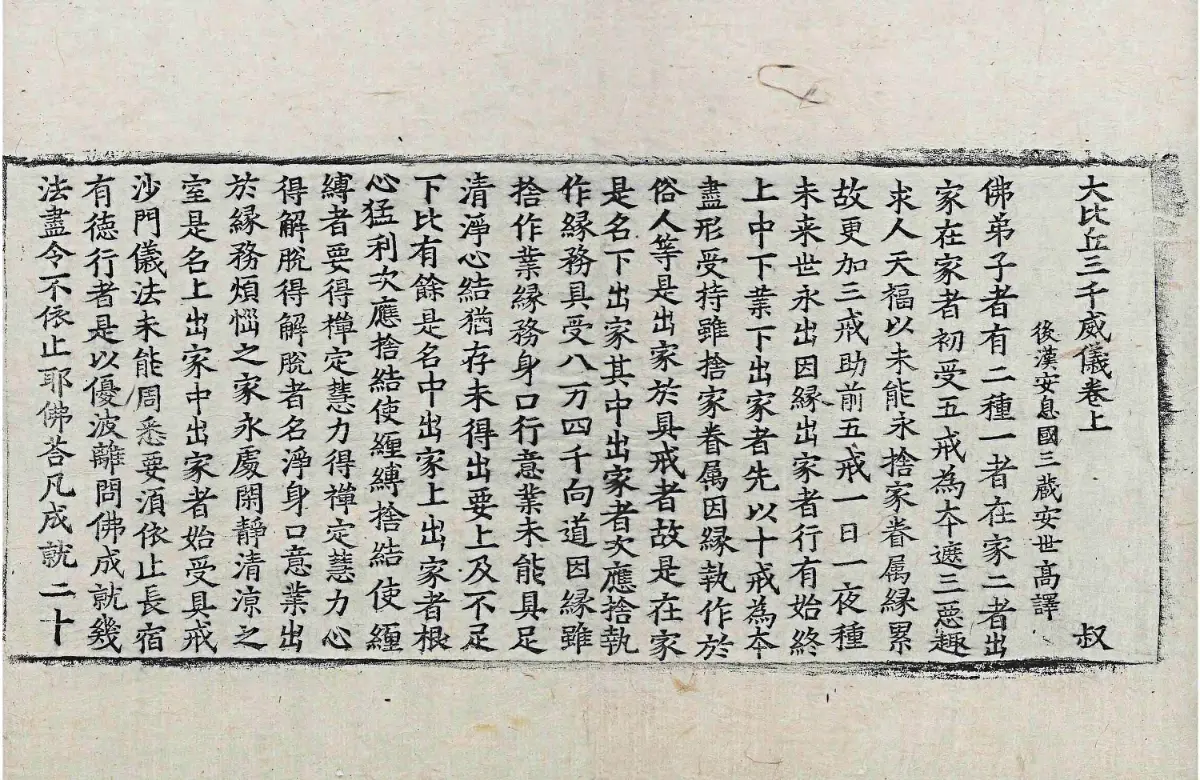 大比丘三千威儀卷上　叔
後漢安息國三蔵安世高譯
佛弟子者有二種一者在家二者出
家在家者初受五戒為夲遮三惡趣
求人天福以未能永捨家眷属緣累
故更加三戒助前五戒一日一夜種
未来世永出因緣出家者行有始終
上中下業下出家者先以十戒為夲
盡形受持雖捨家眷属因緣執作於
俗人等是出家於具戒者故是在家
是名下出家其中出家者次應捨執
作緣務具受八万四千向道因緣雖
捨作業緣務身口行意業未能具足
清淨心結猶存未得出要上及不足
下比有餘是名中出家上出家者根
心猛利次應捨結使纏縛捨結使纏
縛者要得禪定慧力得禪定慧力心
得解脫得解脫者名淨身口意業出
於緣務煩惱之家永處閑靜清涼之
室是名上出家中出家者始受具戒
沙門儀法未能周悉要湏依止長宿
有徳行者是以優波離問佛成就幾
法盡令不依止耶佛荅凡成就二十